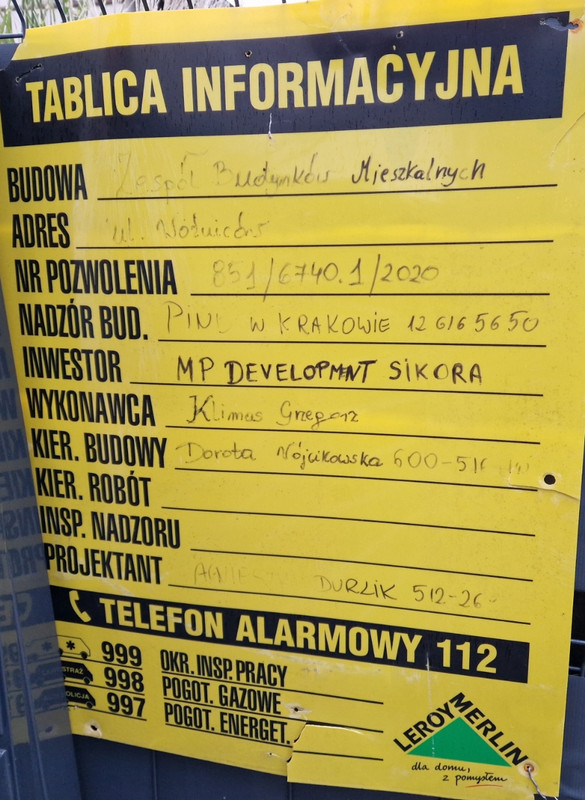 TABLICA INFORMACYJNA
BUDOWA Zespół Budynków Mieszkalnych
ADRES ul. Woźniców
NR POZWOLENIA 851/6740.1/2020
NADZÓR BUD. PINB W KRAKOWIE 12 616 56 50
INWESTOR MP DEVELOPMNT SIKORA
WYKONAWCA Klimas Grzegorz
KIER. BUDOWY Dorota Wójcikowska 600-51
KIER. ROBÓT
INSP. NADZORU
PROJEKTANT DURLIK 512-26
TELEFON ALARMOWY 112
999 OKR. INSP. PRACY
STRAŻ 998 POGOT. GAZOWE
POLICJA 997 POGOT. ENERGET.
LEROY MERLIN
dla domu,
z pomysłem